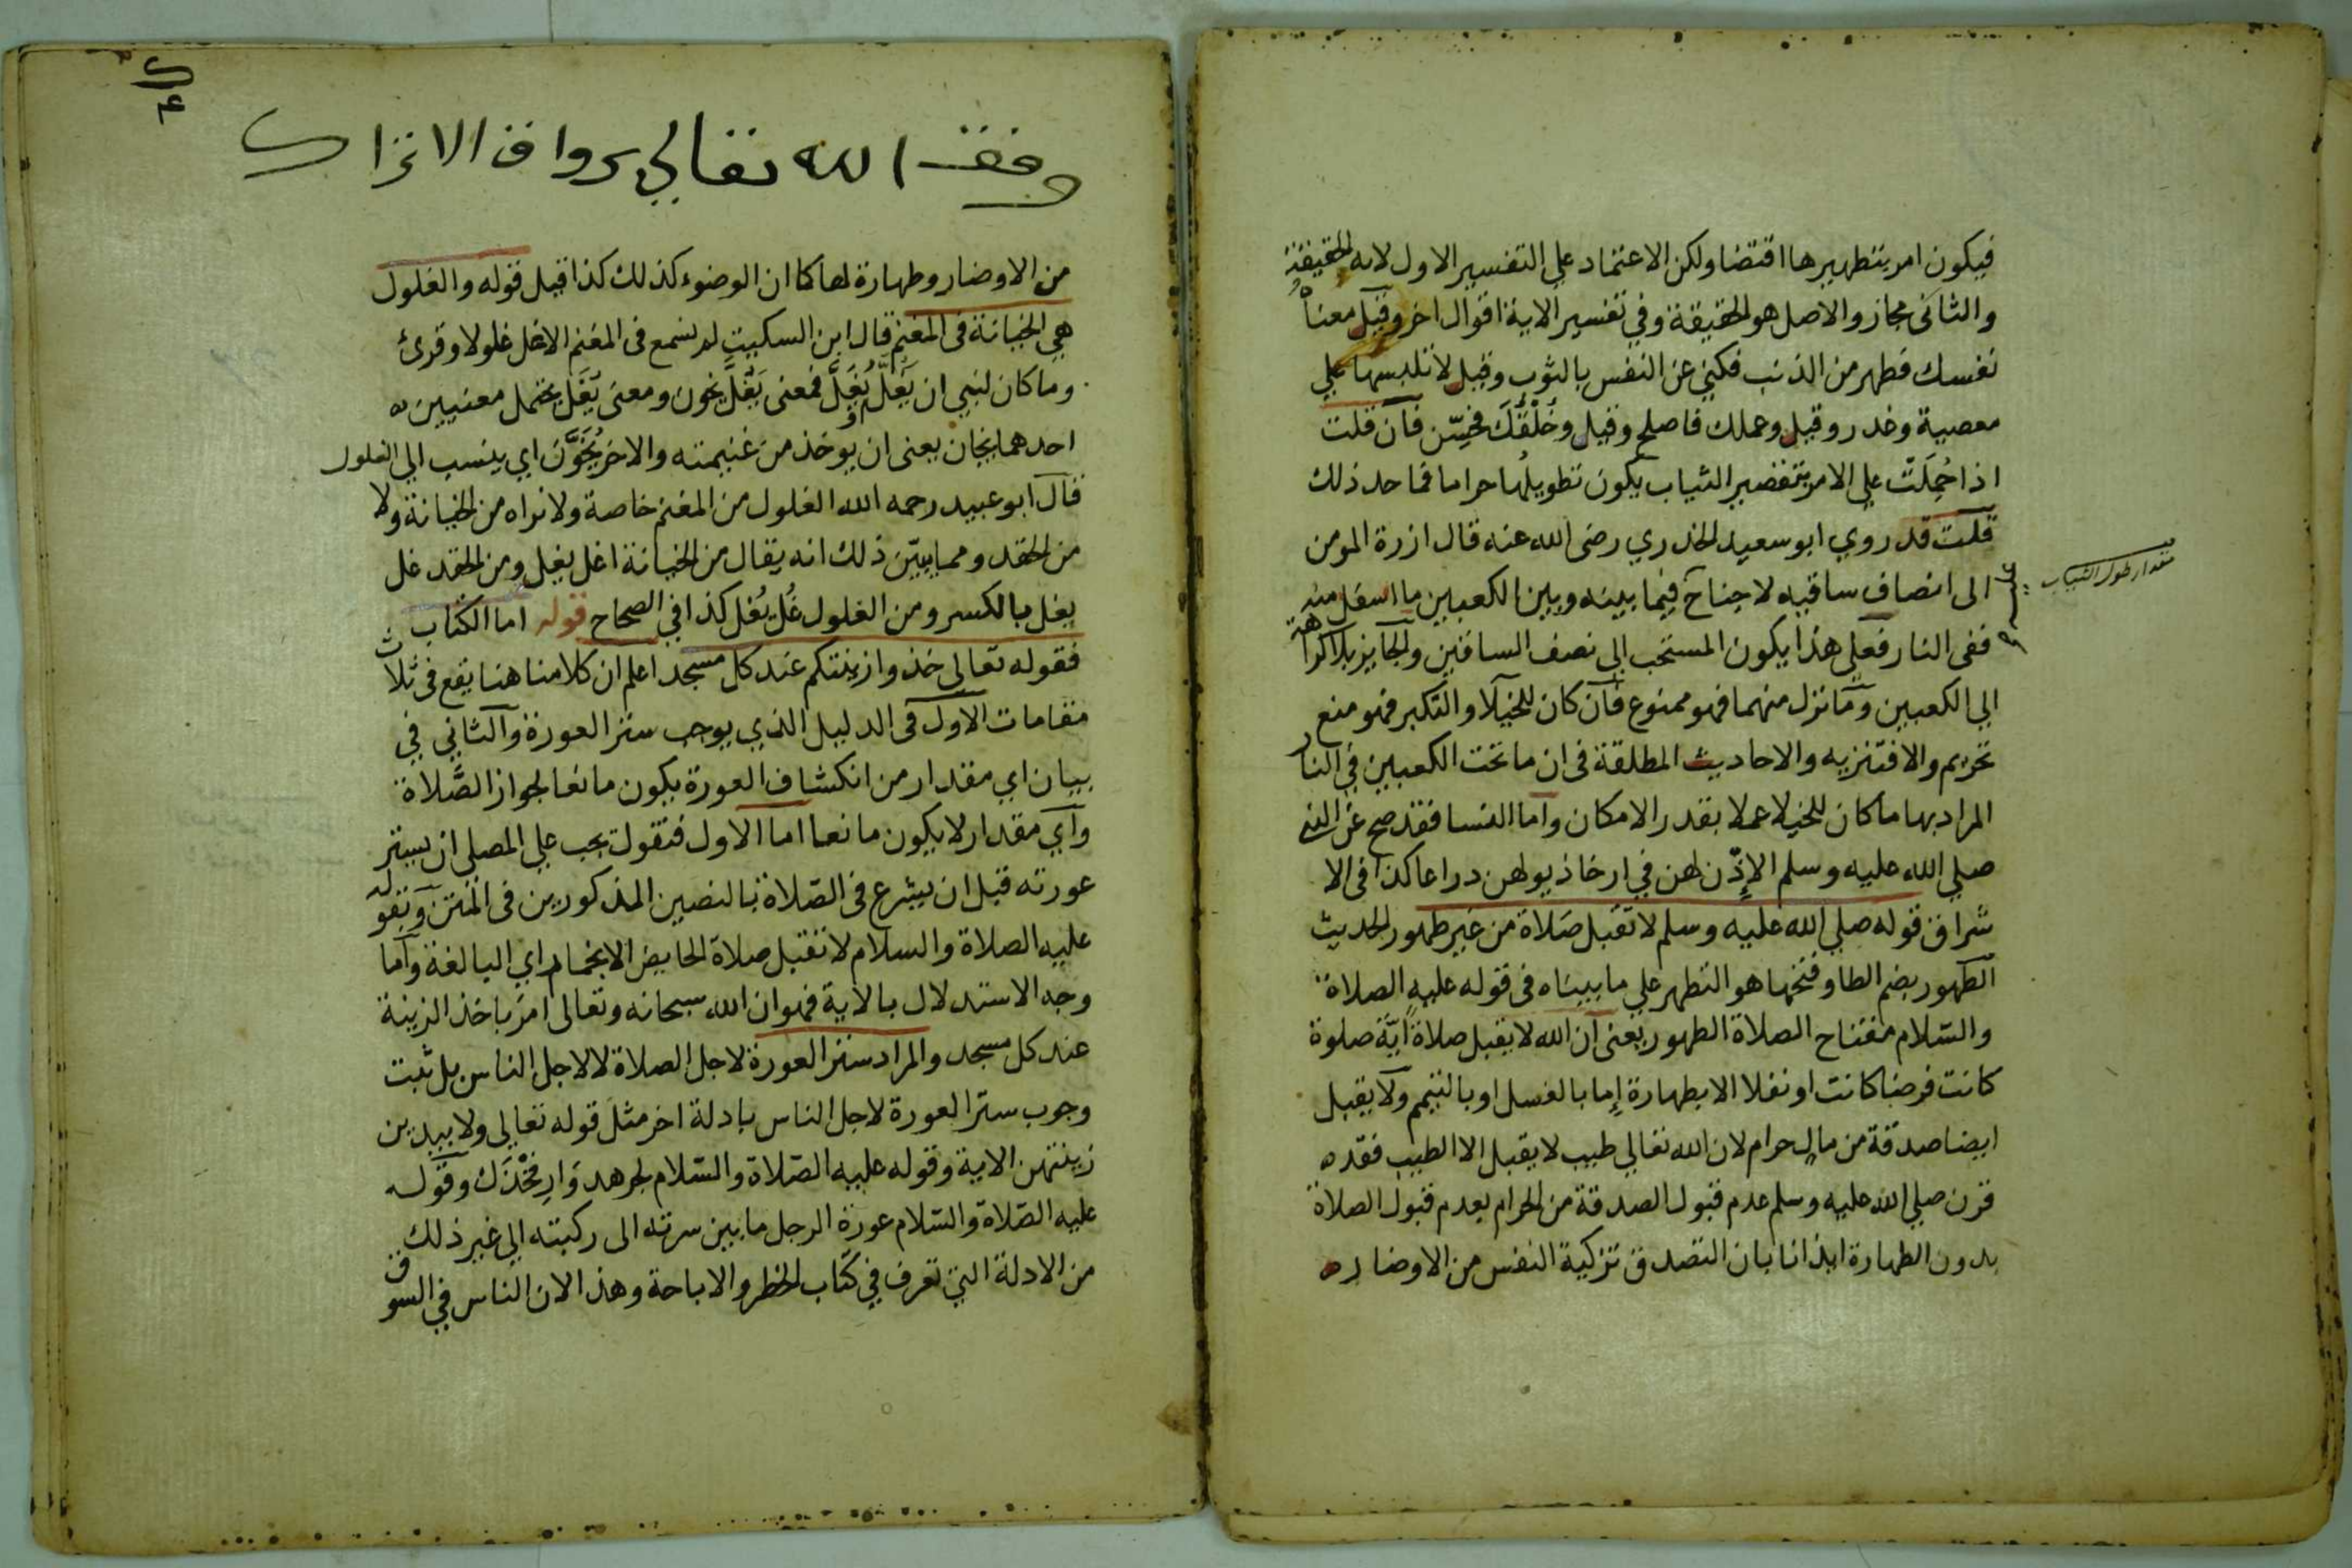 فيكون امر بتطهيرها اقتضا ولكن الاعتماد علي التفسير الاول لانه الحقيقة
والثانى مجاز والاصل هو الحقيقة وفي تفسير الاية اقوال اخر وقيل معناه
نفسك فطهر من الذنب فكني عن النفس بالثوب وقيل لا تلبسها علي
معصية وغدر وقيل وعملك فاصلح وقيل وخُلْقَكَ فحسّن فان قلت
اذا حُمِلَتْ علي الامر بتقصير الثياب يكون تطويلُها حراما فما حد ذلك
قلت قد روي ابو سعيد الخدري رضى الله عنه قال ازرة المومن
الى انصاف ساقيه لا جناح فيما بينه وبين الكعبين ما اسفل منه
مقدار طول الثياب
ففى النار فعلى هذا يكون المستحب الى نصف الساقين والجايز بلا كراهة
الي الكعبين وما نزل منهما فهو ممنوع فان كان للخيلا والتكبر فهو منع
تحريم والا فتنزيه والاحاديث المطلقة فى ان ما تحت الكعبين في النار
المراد بها ما كان للخيلا عملا بقدر الامكان واما النسا فقد صح عن النبى
صلي الله عليه وسلم الإذن لهن في ارخا ذيولهن دراعا كذا فى الا
شراق قوله صلي الله عليه وسلم لا تقبل صلاة من غير طهور الحديث
الطهور بضم الطا وفتحها هو التطهر علي ما بيناه فى قوله عليه الصلاة
والسلام مفتاح الصلاة الطهور يعنى ان الله لا يقبل صلاةً ايَّةَ صلوة
كانت فرضا كانت او نفلا الا بطهارة إما بالغسل او بالتيمم ولا يقبل
ايضا صدقة من مال حرام لان الله تعالي طيب لا يقبل الا الطيب فقد
قرن صلي الله عليه وسلم عدم قبول الصدقة من الحرام بعدم قبول الصلاة
بدون الطهارة ايذانا بان التصدق تزكية النفس من الاوضار
وقف الله تعالي برواق الاتراك
من الاوضار وطهارة لها كما ان الوضوء كذلك كذا قيل قوله والغلول
هي الخيانة فى المغنم قال ابن السكيت لم نسمع فى المغنم الا غل غلولا وقرئ
وما كان لنبي ان يَغُلّ ويُغَلَّ فمعنى يَغُلَّ يخون ومعنى يُغَل يحتمل معنيين
احدهما يخان يعنى ان يوخذ من غنيمته والاخر يُخَوَّنَ اي ينسب الي الغلول
قال ابو عبيد رحمه الله الغلول من المغنم خاصة ولا نراه من الخيانة ولا
من الحقد ومما يبيّن ذلك انه يقال من الخيانة اغل يغل ومن الحقد غل
يغل بالكسر ومن الغلول غُل يُغل كذا في الصحاح قوله اما الكتاب
فقوله تعالى خذوا زينتكم عند كل مسجد اعلم ان كلامنا هنا يقع فى ثلاث
مقامات الاول فى الدليل الذي يوجب ستر العورة والثاني في
بيان اي مقدار من انكشاف العورة يكون مانعا لجواز الصَّلاة
واي مقدار لا يكون مانعا اما الاول فنقول يجب علي المصلي ان يستر
عورته قبل ان يشرع فى الصّلاة بالنصين المذكورين فى المتن وبقوله
عليه الصلاة والسلام لا تقبل صلاة الحايض الا بخمار اي البالغة واما
وجه الاستدلال بالاية فهو ان الله سبحانه وتعالى امَرَ باخذ الزينة
عند كل مسجد والمراد ستر العورة لاجل الصلاة لا لاجل الناس بل ثبت
وجوب ستر العورة لاجل الناس بادلة اخر مثل قوله تعالى ولا يبدين
زينتهن الاية وقوله عليه الصّلاة والسّلام لجرهد وَارِ فَخْذَكَ وقوله
عليه الصّلاة والسّلام عورة الرجل ما بين سرته الى ركبته الي غير ذلك
من الادلة التي تعرف في كتاب الحظر والاباحة وهذا لان الناس في السوق